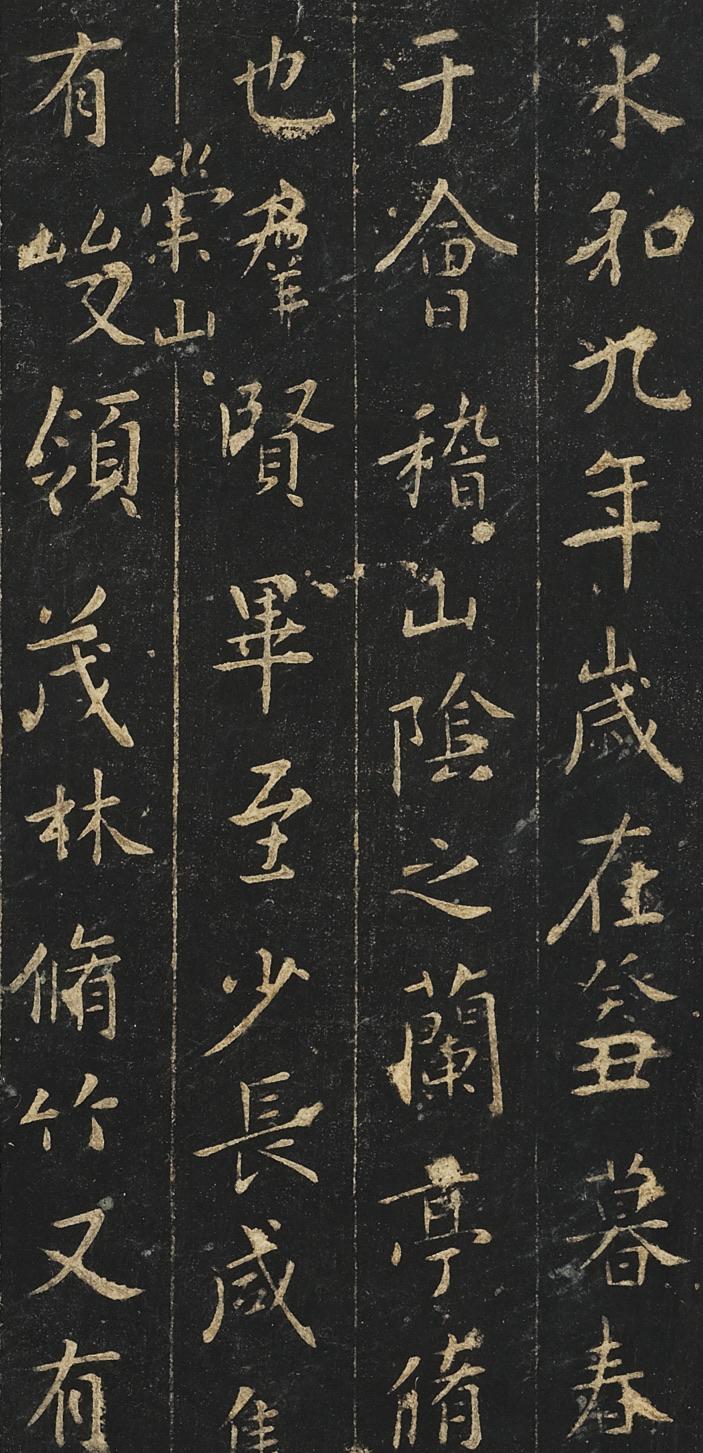 永和九年歲在癸丑暮春
于會稽山陰之蘭亭脩
也羣賢畢至少長咸集
崇山
有峻領茂林脩竹又有